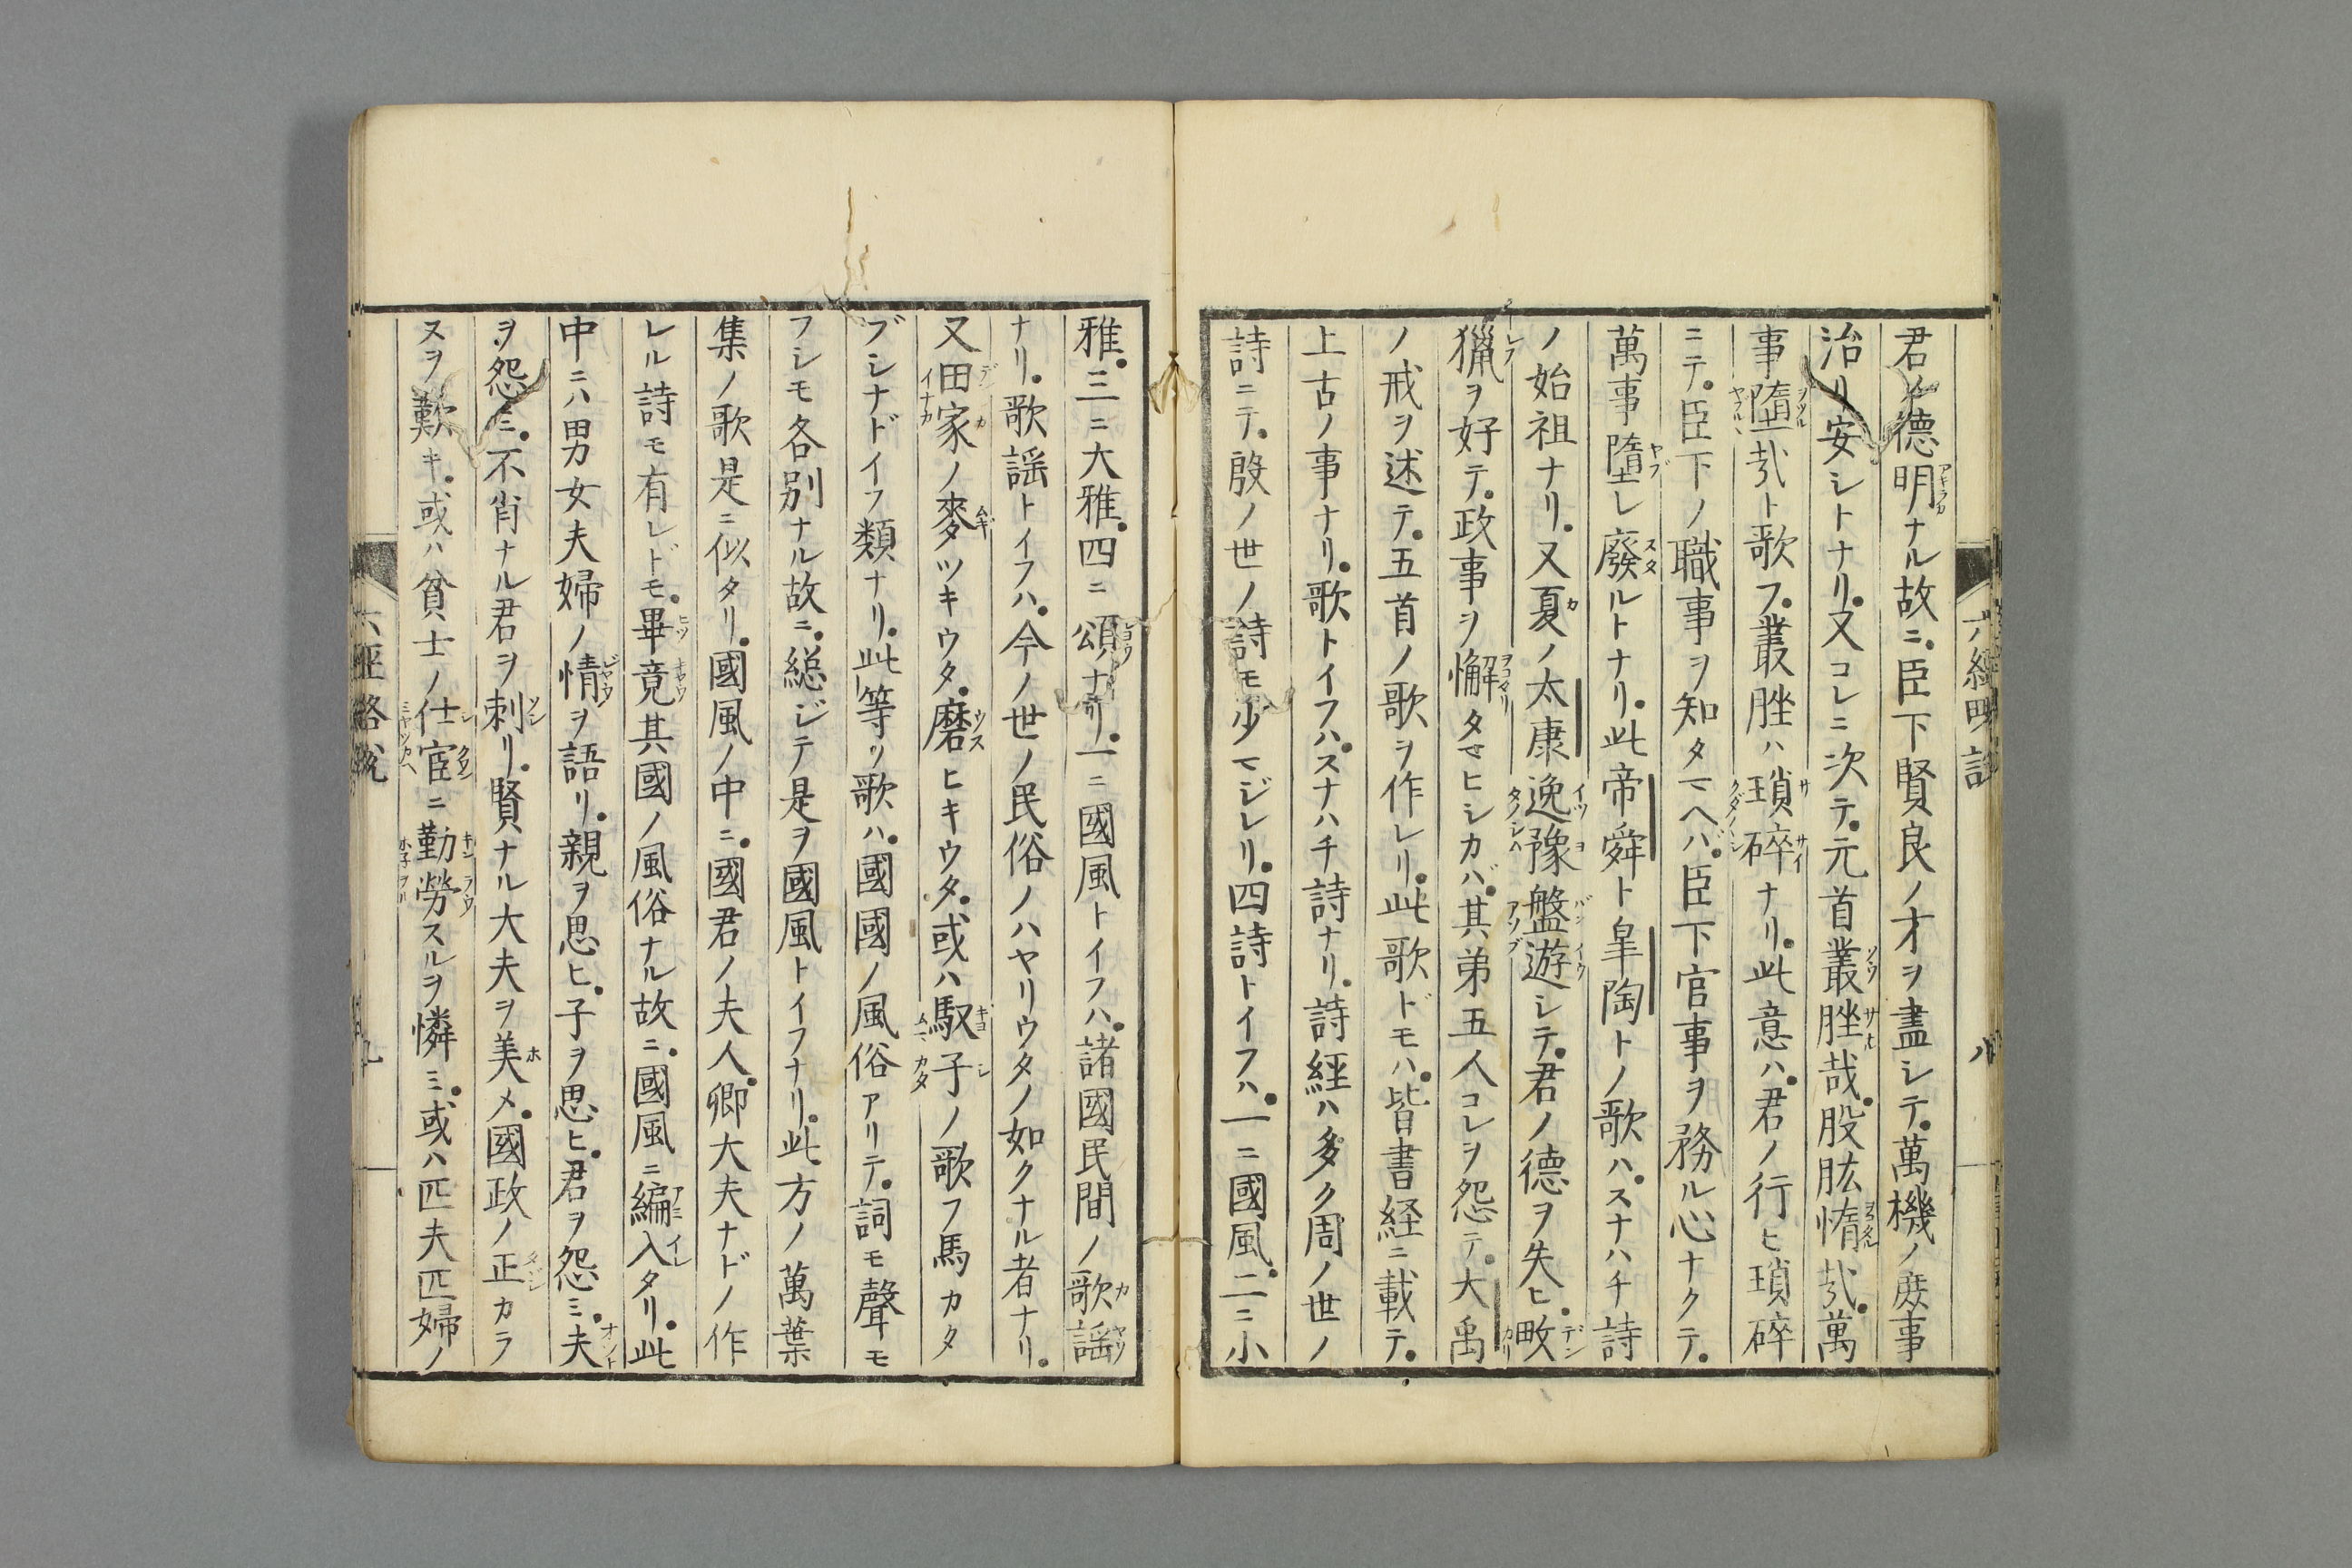 六經略説
八
君ノ德明ナル故ニ。臣下賢良ノ才ヲ盡シテ。萬機ノ庶事
治リ安シトナリ。又コレニ次テ。元首叢脞哉。股肱惰哉。萬
事墮哉ト歌フ。叢脞ハ瑣碎ナリ。此意ハ。君ノ行ヒ瑣碎
ニテ。臣下ノ職事ヲ知タマヘバ。臣下官事ヲ務ル心ナクテ。
萬事墮レ廢ルトナリ。此帝舜ト皐陶トノ歌ハ。スナハチ詩
ノ始祖ナリ。又夏ノ太康逸豫盤遊シテ。君ノ德ヲ失ヒ。畋
獵ヲ好テ。政事ヲ懈タマヒシカバ。其弟五人コレヲ怨テ。大禹
ノ戒ヲ述テ。五首ノ歌ヲ作レリ。此歌ドモハ。皆書経ニ載テ。
上古ノ事ナリ。歌トイフハ。スナハチ詩ナリ。詩經ハ多ク周ノ世ノ
詩ニテ。殷ノ世ノ詩モ少マジレリ。四詩トイフハ。一ニ國風。二ニ小
雅。三ニ大雅。四ニ頌ナリ。一ニ國風トイフハ。諸國民間ノ歌謡
ナリ。歌謡トイフハ。今ノ世ノ民俗ノハヤリウタノ如クナル者ナリ。
又田家ノ麥ツキウタ。磨ヒキウタ。或ハ馭子ノ歌フ馬カタ
ブシナドイフ類ナリ。此等ノ歌ハ。國國ノ風俗アリテ。詞モ聲モ
フシモ各別ナル故ニ。総ジテ是ヲ國風トイフナリ。此方ノ萬葉
集ノ歌是ニ似タリ。國風ノ中ニ。國君ノ夫人。卿大夫ナドノ作
レル詩モ有レドモ。畢竟其國ノ風俗ナル故ニ。國風ニ編入タリ。此
中ニハ男女夫婦ノ情ヲ語リ。親ヲ思ヒ。子ヲ思ヒ。君ヲ怨ミ。夫
ヲ怨ミ。不肖ナル君ヲ刺リ。賢ナル大夫ヲ美メ。國政ノ正カラ
ヌヲ歎キ。或ハ貧士ノ仕宦ニ勤勞スルヲ憐ミ。或ハ匹夫匹婦ノ
六經略説
九